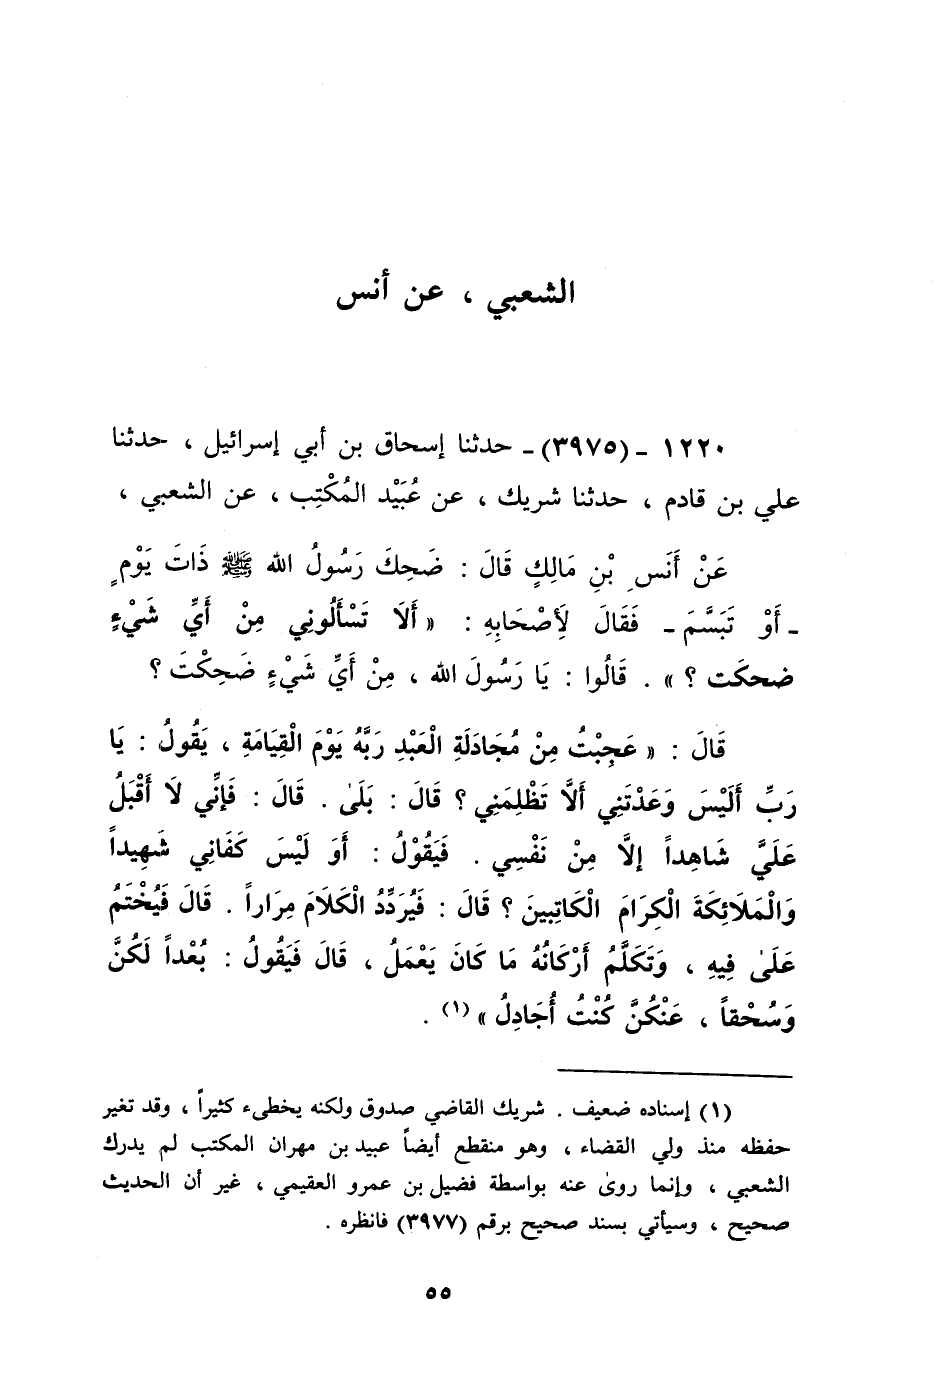 الشعبي ، عن أنس
١٢٢٠ ـ (٣٩٧٥) ـ حدثنا إسحاق بن أبي إسرائيل ، حدثنا
علي بن قادم ، حدثنا شريك ، عن عُبَيْد المُكْتِب ، عن الشعبي ،
عَنْ أَنَسِ بْنِ مَالِكٍ قَالَ : ضَحِكَ رَسُولُ الله ﷺ ذَاتَ يَوْمٍ
ـ أَوْ تَبَسَّمَ ـ فَقَالَ لِأَصْحَابِهِ : « أَلَا تَسْأَلُونِي مِنْ أَيِّ شَيْءٍ
ضحكَت ؟ » . قَالُوا : يَا رَسُولَ الله ، مِنْ أَيِّ شَيْءٍ ضَحِكْتَ ؟
قَالَ : « عَجِبْتُ مِنْ مُجَادَلَةِ الْعَبْدِ رَبَّهُ يَوْمَ الْقِيَامَةِ ، يَقُولُ : يَا
رَبِّ أَلَيْسَ وَعَدْتَنِي أَلاَّ تَظْلِمَنِي ؟ قَالَ : بَلَىٰ . قَالَ : فَإِنِّي لَا أَقْبَلُ
عَلَيَّ شَاهِداً إلاَّ مِنْ نَفْسِي . فَيَقُوْلُ : أَوَ لَيْسَ كَفَانِي شَهِيداً
وَالْمَلَائِكَةَ الْكِرَامَ الْكَاتِبينَ ؟ قَالَ : فَيُرَدِّدُ الْكَلَامَ مِرَاراً . قَالَ فَيُخْتَمُ
عَلَىٰ فِيهِ ، وَتَكَلَّمُ أَرْكَانُهُ مَا كَانَ يَعْمَلُ ، قَالَ فَيَقُولُ : بُعْداً لَكُنَّ
وَسُحْقاً ، عَنْكُنَّ كُنْتُ أُجَادِلُ »(١) .
(١) إسناده ضعيف . شريك القاضي صدوق ولكنه يخطىء كثيراً ، وقد تغير
حفظه منذ ولي القضاء ، وهو منقطع أيضاً عبيد بن مهران المكتب لم يدرك
الشعبي ، وإنما روىٰ عنه بواسطة فضيل بن عمرو العقيمي ، غير أن الحديث
صحيح ، وسيأتي بسند صحيح برقم (٣٩٧٧) فانظره .
٥٥